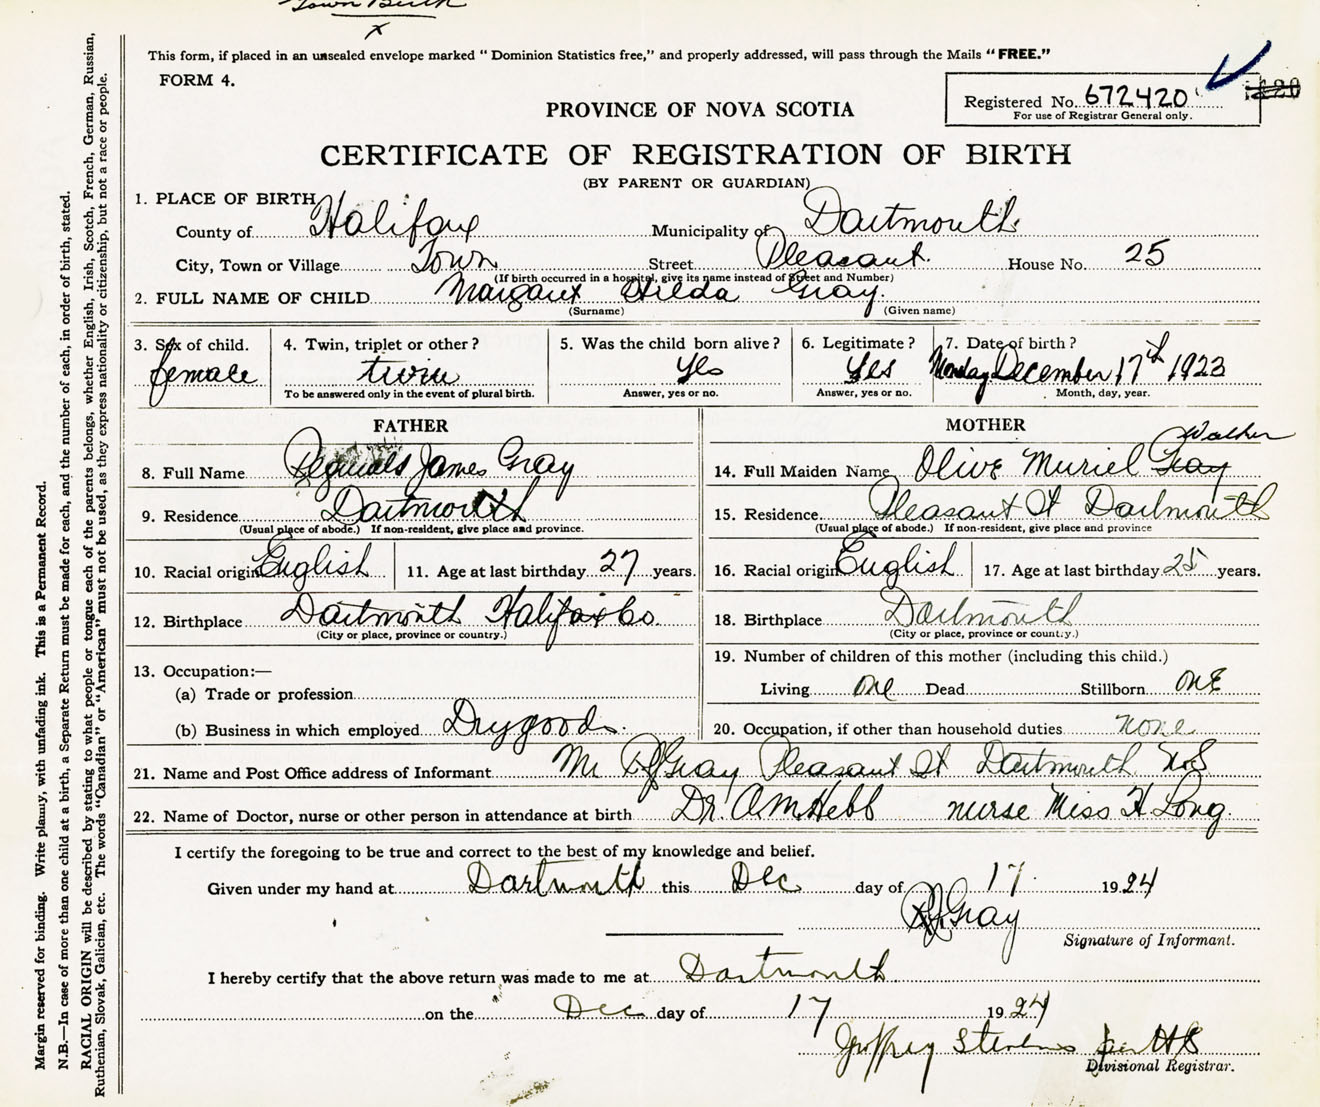 Town Birth
x
This form, if placed in an unsealed envelope marked "Dominion Statistics free," and properly addressed, will pass through the Mails "FREE."
FORM 4.
Registered No. 672420
For use of Registrar General only.
PROVINCE OF NOVA SCOTIA
CERTIFICATE OF REGISTRATION OF BIRTH
(BY PARENT OR GUARDIAN)
1. PLACE OF BIRTH
County of Halifax Municipality of Dartmouth
City, Town or Village Town Street Pleasant House No. 25
(If birth occurred in a hospital, give its name instead of Street and Number)
2. FULL NAME OF CHILD Margaret Hilda Gray.
(Surname) (Given name)
3. Sex of child. 4. Twin, triplet or other? 5. Was the child born alive? 6. Legitimate? 7. Date of birth?
female twin Yes Yes Monday December 17th 1923
To be answered only in the event of plural birth. Answer, yes or no. Answer, yes or no. Month, day, year.
FATHER
8. Full Name Reginald James Gray
9. Residence Dartmouth
(Usual place of abode.) If non-resident, give place and province.
10. Racial origin English 11. Age at last birthday 27 years.
12. Birthplace Dartmouth Halifax Co.
(City or place, province or country.)
13. Occupation:—
(a) Trade or profession
(b) Business in which employed Drygoods.
MOTHER
Walker
14. Full Maiden Name Olive Muriel Gray
15. Residence Pleasant St Dartmouth
(Usual place of abode.) If non-resident, give place and province
16. Racial origin English 17. Age at last birthday 25 years.
18. Birthplace Dartmouth
(City or place, province or country.)
19. Number of children of this mother (including this child.)
Living one Dead Stillborn one
20. Occupation, if other than household duties none
21. Name and Post Office address of Informant Mr RJ Gray Pleasant St Dartmouth N.S
22. Name of Doctor, nurse or other person in attendance at birth Dr. A M Hebb nurse Miss H. Long
I certify the foregoing to be true and correct to the best of my knowledge and belief.
Given under my hand at Dartmouth this Dec day of 17 1924
RJ Gray
Signature of Informant.
I hereby certify that the above return was made to me at Dartmouth
on the Dec day of 17 1924
Geoffrey Stevens per HS
Divisional Registrar.
Margin reserved for binding. Write plainly, with unfading ink. This is a Permanent Record.
N.B.—In case of more than one child at a birth, a Separate Return must be made for each, and the number of each, in order of birth, stated.
RACIAL ORIGIN will be described by stating to what people or tongue each of the parents belongs, whether English, Irish, Scotch, French, German, Russian,
Ruthenian, Slovak, Galician, etc. The words "Canadian" or "American" must not be used, as they express nationality or citizenship, but not a race or people.